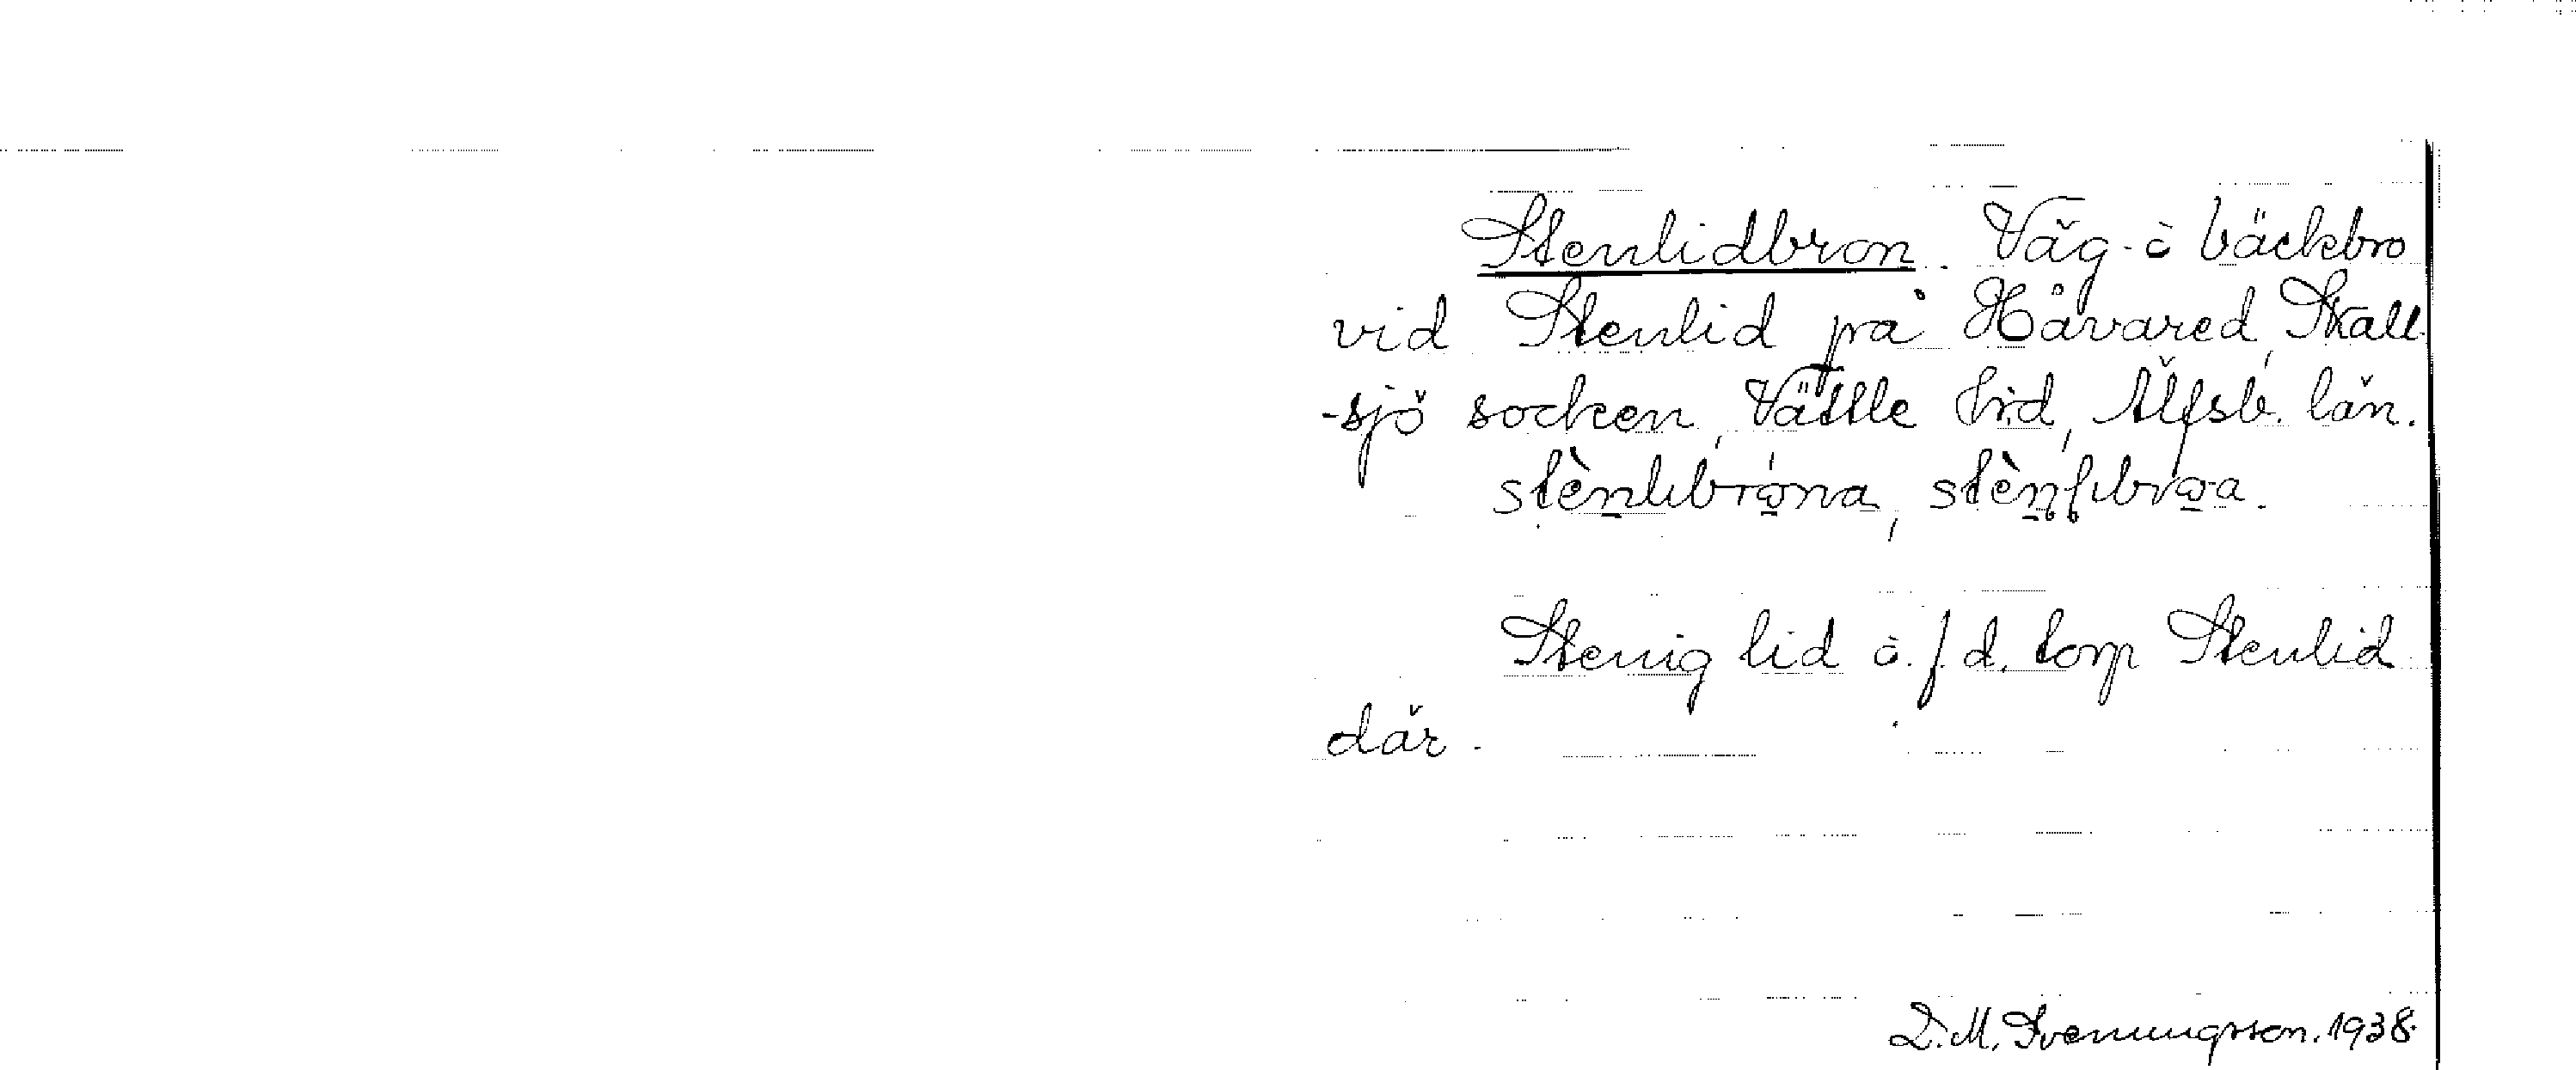 Stenlidbron. Väg- å bäckbro
vid Stenlid på Håvared, Skall-
-sjö socken, Vättle hrd, Älfsb. län.
stènlıbrǫna, stènlıbrǫa.
Stenig lid å f. d. torp Stenlid
där.
D. M. Svenungsson. 1938.